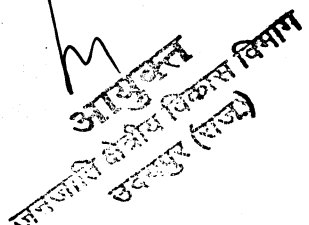 आयुक्त
जनजाति क्षेत्रीय विकास विभाग
उदयपुर (राज.)